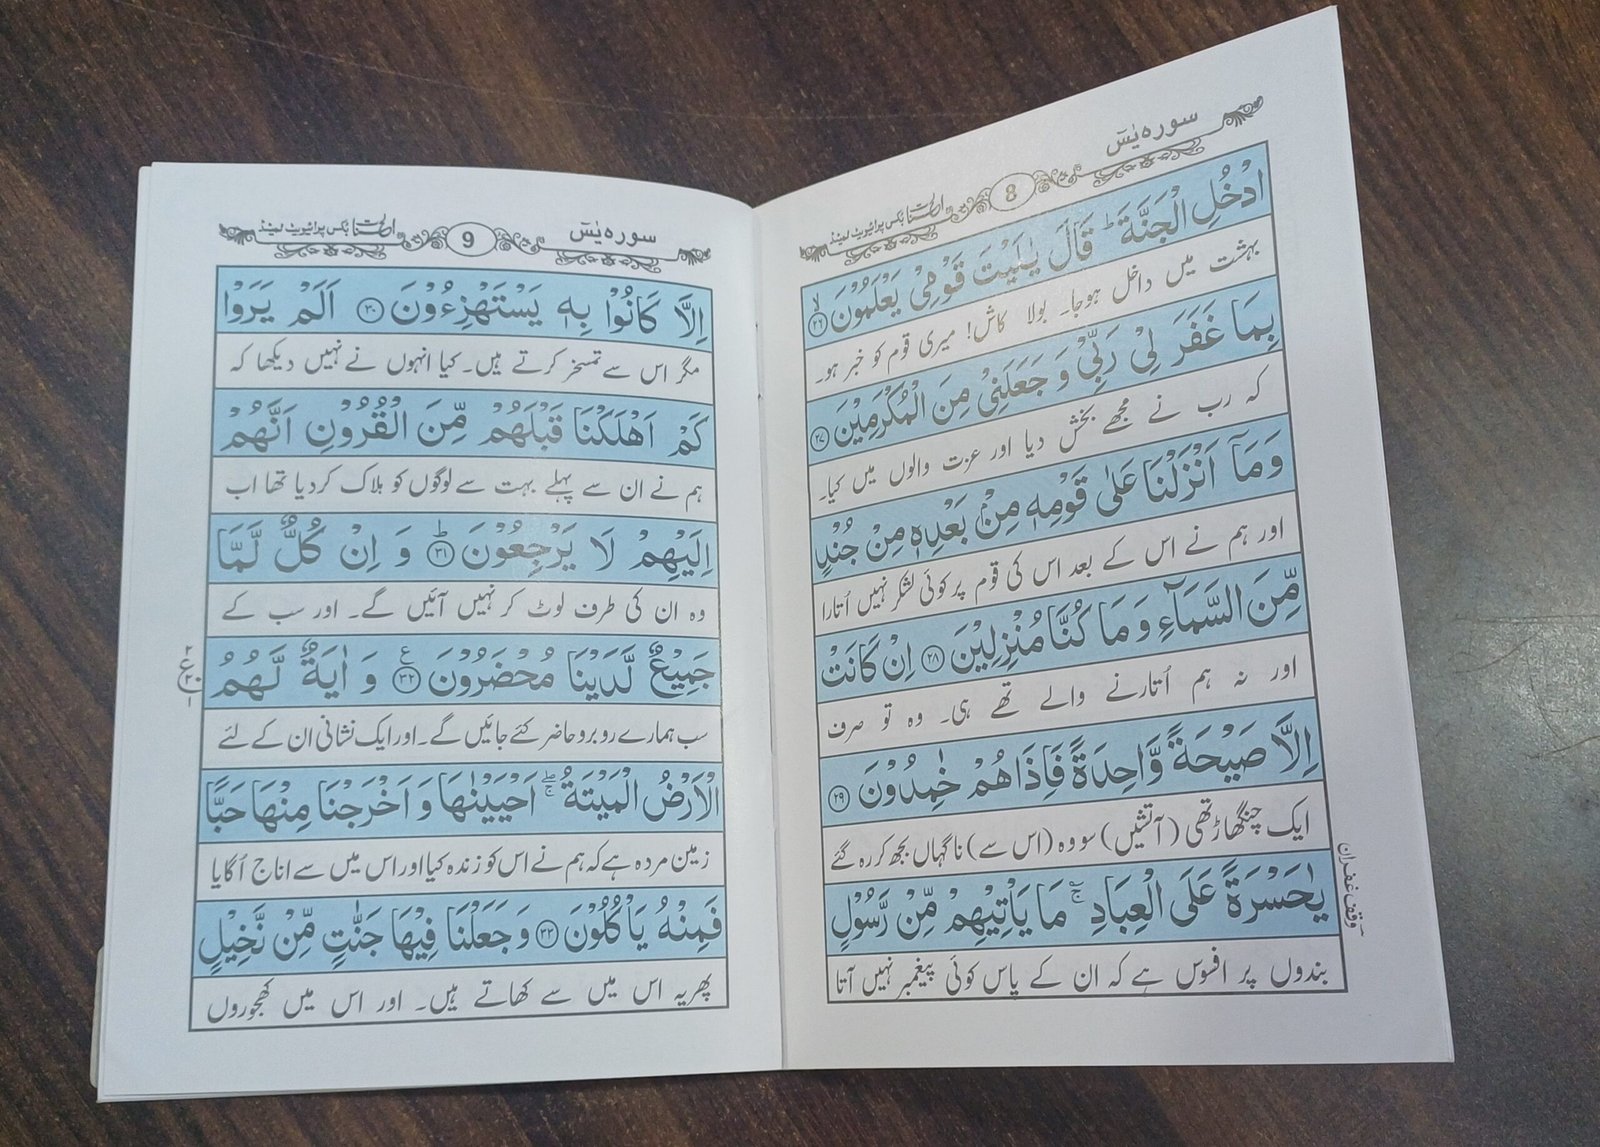 سورہ یٰسٓ
8
بکس پرائیویٹ لمیٹڈ
ادْخُلِ الْجَنَّةَ ؕ قَالَ يٰلَيْتَ قَوْمِيْ يَعْلَمُوْنَ ۙ﴿۲۶﴾
بہشت میں داخل ہوجا۔ بولا کاش! میری قوم کو خبر ہو۔
بِمَا غَفَرَ لِيْ رَبِّيْ وَ جَعَلَنِيْ مِنَ الْمُكْرَمِيْنَ ﴿۲۷﴾
کہ رب نے مجھے بخش دیا اور عزت والوں میں کیا۔
وَ مَاۤ اَنْزَلْنَا عَلٰى قَوْمِهٖ مِنْۢ بَعْدِهٖ مِنْ جُنْدٍ
اور ہم نے اس کے بعد اس کی قوم پر کوئی لشکر نہیں اُتارا
مِّنَ السَّمَآءِ وَ مَا كُنَّا مُنْزِلِيْنَ ﴿۲۸﴾ اِنْ كَانَتْ
اور نہ ہم اُتارنے والے تھے ہی۔ وہ تو صرف
اِلَّا صَيْحَةً وَّاحِدَةً فَاِذَا هُمْ خٰمِدُوْنَ ﴿۲۹﴾
ایک چنگھاڑ تھی (آتشیں) سو وہ (اس سے) ناگہاں بجھ کر رہ گئے
يٰحَسْرَةً عَلَى الْعِبَادِ ۚؔ مَا يَاْتِيْهِمْ مِّنْ رَّسُوْلٍ
بندوں پر افسوس ہے کہ ان کے پاس کوئی پیغمبر نہیں آتا
وقف غفران
سورہ یٰسٓ
9
بکس پرائیویٹ لمیٹڈ
اِلَّا كَانُوْا بِهٖ يَسْتَهْزِءُوْنَ ﴿۳۰﴾ اَلَمْ يَرَوْا
مگر اس سے تمسخر کرتے ہیں۔ کیا انہوں نے نہیں دیکھا کہ
كَمْ اَهْلَكْنَا قَبْلَهُمْ مِّنَ الْقُرُوْنِ اَنَّهُمْ
ہم نے ان سے پہلے بہت سے لوگوں کو ہلاک کردیا تھا اب
اِلَيْهِمْ لَا يَرْجِعُوْنَ ؕ﴿۳۱﴾ وَ اِنْ كُلٌّ لَّمَّا
وہ ان کی طرف لوٹ کر نہیں آئیں گے۔ اور سب کے
جَمِيْعٌ لَّدَيْنَا مُحْضَرُوْنَ ﴿۳۲﴾ع وَ اٰيَةٌ لَّهُمُ
سب ہمارے روبرو حاضر کئے جائیں گے۔ اور ایک نشانی ان کے لئے
الْاَرْضُ الْمَيْتَةُ ۚۖ اَحْيَيْنٰهَا وَ اَخْرَجْنَا مِنْهَا حَبًّا
زمین مردہ ہے کہ ہم نے اس کو زندہ کیا اور اس میں سے اناج اُگایا
فَمِنْهُ يَاْكُلُوْنَ ﴿۳۳﴾ وَ جَعَلْنَا فِيْهَا جَنّٰتٍ مِّنْ نَّخِيْلٍ
پھریہ اس میں سے کھاتے ہیں۔ اور اس میں کھجوروں